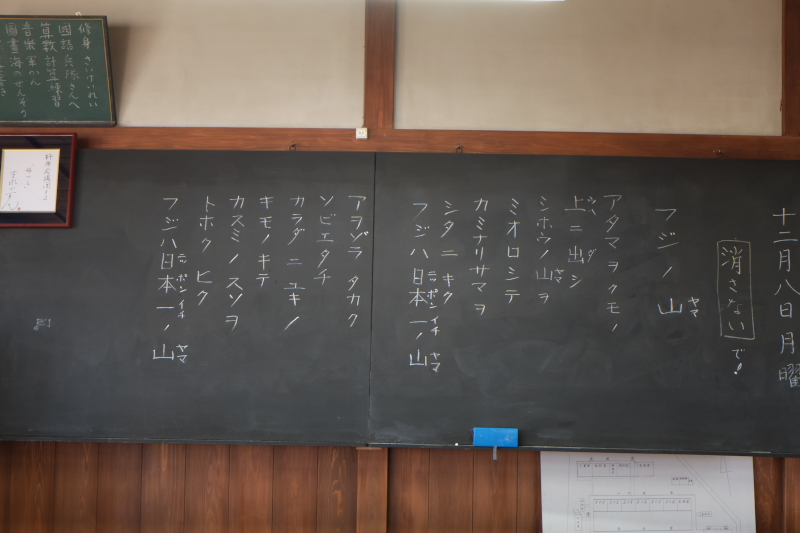 十二月八日月曜
消さない
で!
フジノ山
ヤマ
アタマヲクモノ
上ニ出シ
ウヘ
ダ
シホウノ山ヲ
ヤマ
ミオロシテ
カミナリサマヲ
シタニキク
フジハ日本一ノ山
ニッポンイチ
ヤマ
アヲゾラ タカク
ソビエタチ
カラダニユキノ
キモノキテ
カスミノスソヲ
トホクヒク
フジハ日本一ノ山
ニッポンイチ
ヤマ
修身 さいけいれい
國語 兵隊さんへ
算数 計算練習
音楽 軍かん
圖畫 海のせんそう